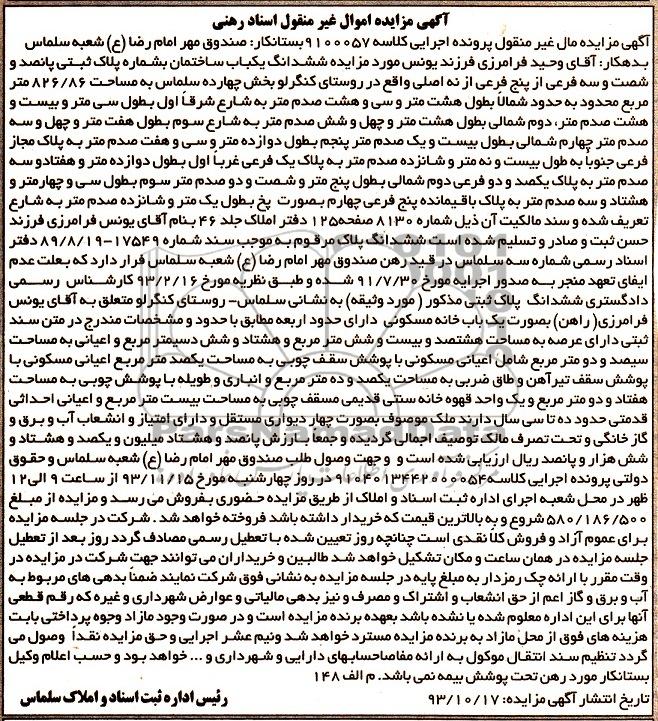 آگهی مزایده اموال غیر منقول اسناد رهنی
آگهی مزایده مال غیر منقول پرونده اجرایی کلاسه ۹۱۰۰۰۵۷ بستانکار: صندوق مهر امام رضا (ع) شعبه سلماس
بدهکار: آقای وحید فرامرزی فرزند یونس مورد مزایده ششدانگ یکباب ساختمان بشماره پلاک ثبتی پانصد و
شصت و سه فرعی از پنج فرعی از نه اصلی واقع در روستای کنگرلو بخش چهارده سلماس به مساحت ۸۲۶/۸۶ متر
مربع محدود به حدود شمالاً بطول هشت متر و سی و هشت صدم متر به شارع شرقاً اول بطول سی متر و بیست و
هشت صدم متر، دوم شمالی بطول هشت متر و چهل و شش صدم متر به شارع سوم بطول هفت متر و چهل و سه
صدم متر چهارم شمالی بطول بیست و یک صدم متر پنجم بطول دوازده متر و سی و هفت صدم متر به پلاک مجاز
فرعی جنوباً به طول بیست و نه متر و شانزده صدم متر به پلاک یک فرعی غرباً اول بطول دوازده متر و هفتاد و سه
صدم متر به پلاک یکصد و دو فرعی دوم شمالی بطول پنج متر و شصت و دو صدم متر سوم بطول سی و چهار متر و
هشتاد و سه صدم متر به پلاک باقیمانده پنج فرعی چهارم بصورت پخ بطول یک متر و شانزده صدم متر به شارع
تعریف شده و سند مالکیت آن ذیل شماره ۸۱۳۰ صفحه ۱۲۵ دفتر املاک جلد ۴۶ بنام آقای یونس فرامرزی فرزند
حسن ثبت و صادر و تسلیم شده است ششدانگ پلاک مرقوم به موجب سند شماره ۱۷۵۴۹-۸۹/۸/۱۹ دفتر
اسناد رسمی شماره سه سلماس در قید رهن صندوق مهر امام رضا (ع) شعبه سلماس قرار دارد که بعلت عدم
ایفای تعهد منجر به صدور اجراییه مورخ ۹۱/۷/۳۰ شده و طبق نظریه مورخ ۹۳/۲/۱۶ کارشناس رسمی
دادگستری ششدانگ پلاک ثبتی مذکور (مورد وثیقه) به نشانی سلماس- روستای کنگرلو متعلق به آقای یونس
فرامرزی (راهن) بصورت یک باب خانه مسکونی دارای حدود اربعه مطابق با حدود و مشخصات مندرج در متن سند
ثبتی دارای عرصه به مساحت هشتصد و بیست و شش متر مربع و هشتاد و شش دسیمتر مربع و اعیانی به مساحت
سیصد و دو متر مربع شامل اعیانی مسکونی با پوشش سقف چوبی به مساحت یکصد متر مربع اعیانی مسکونی با
پوشش سقف تیرآهن و طاق ضربی به مساحت یکصد و ده متر مربع و انباری و طویله با پوشش چوبی به مساحت
هفتاد و دو متر مربع و یک واحد قهوه خانه سنتی قدیمی مسقف چوبی به مساحت بیست متر مربع و اعیانی احداثی
قدمتی حدود ده تا سی سال دارند ملک موصوف بصورت چهار دیواری مستقل و دارای امتیاز و انشعاب آب و برق و
گاز خانگی و تحت تصرف مالک توصیف اجمال گردیده و جمعاً بارزش پانصد و هشتاد میلیون و یکصد و هشتاد و
شش هزار و پانصد ریال ارزیابی شده است و و جهت وصول طلب صندوق مهر امام رضا (ع) شعبه سلماس و حقوق
دولتی پرونده اجرایی کلاسه ۹۱۰۴۰۱۳۴۴۲۰۰۰۰۵۴ در روز چهارشنبه مورخ ۹۳/۱۱/۱۵ از ساعت ۹ الی ۱۲
ظهر در محل شعبه اجرای اداره ثبت اسناد و املاک از طریق مزایده حضوری بفروش می رسد و مزایده از مبلغ
۵۸۰/۱۸۶/۵۰۰ شروع و به بالاترین قیمت که خریدار داشته باشد فروخته خواهد شد. شرکت در جلسه مزایده
برای عموم آزاد و فروش کلاً نقدی است چنانچه روز تعیین شده با تعطیل رسمی مصادف گردد روز بعد از تعطیل
جلسه مزایده در همان ساعت و مکان تشکیل خواهد شد طالبین و خریداران می توانند جهت شرکت در مزایده در
وقت مقرر با ارائه چک رمزدار به مبلغ پایه در جلسه مزایده به نشانی فوق شرکت نمایند ضمناً بدهی های مربوط به
آب و برق و گاز اعم از حق انشعاب و اشتراک و مصرف و نیز بدهی مالیاتی و عوارض شهرداری و غیره که رقم قطعی
آنها برای این اداره معلوم شده یا نشده باشد بعهده برنده مزایده است و در صورت وجود مازاد وجوه پرداختی بابت
هزینه های فوق از محل مازاد به برنده مزایده مسترد خواهد شد ونیم عشر اجرایی و حق مزایده نقداً وصول می
گردد تنظیم سند انتقال موکول به ارائه مفاصاحسابهای دارایی و شهرداری و ... خواهد بود و حسب اعلام وکیل
بستانکار مورد رهن تحت پوشش بیمه نمی باشد. م الف ۱۴۸
تاریخ انتشار آگهی مزایده: ۹۳/۱۰/۱۷ رئیس اداره ثبت اسناد و املاک سلماس